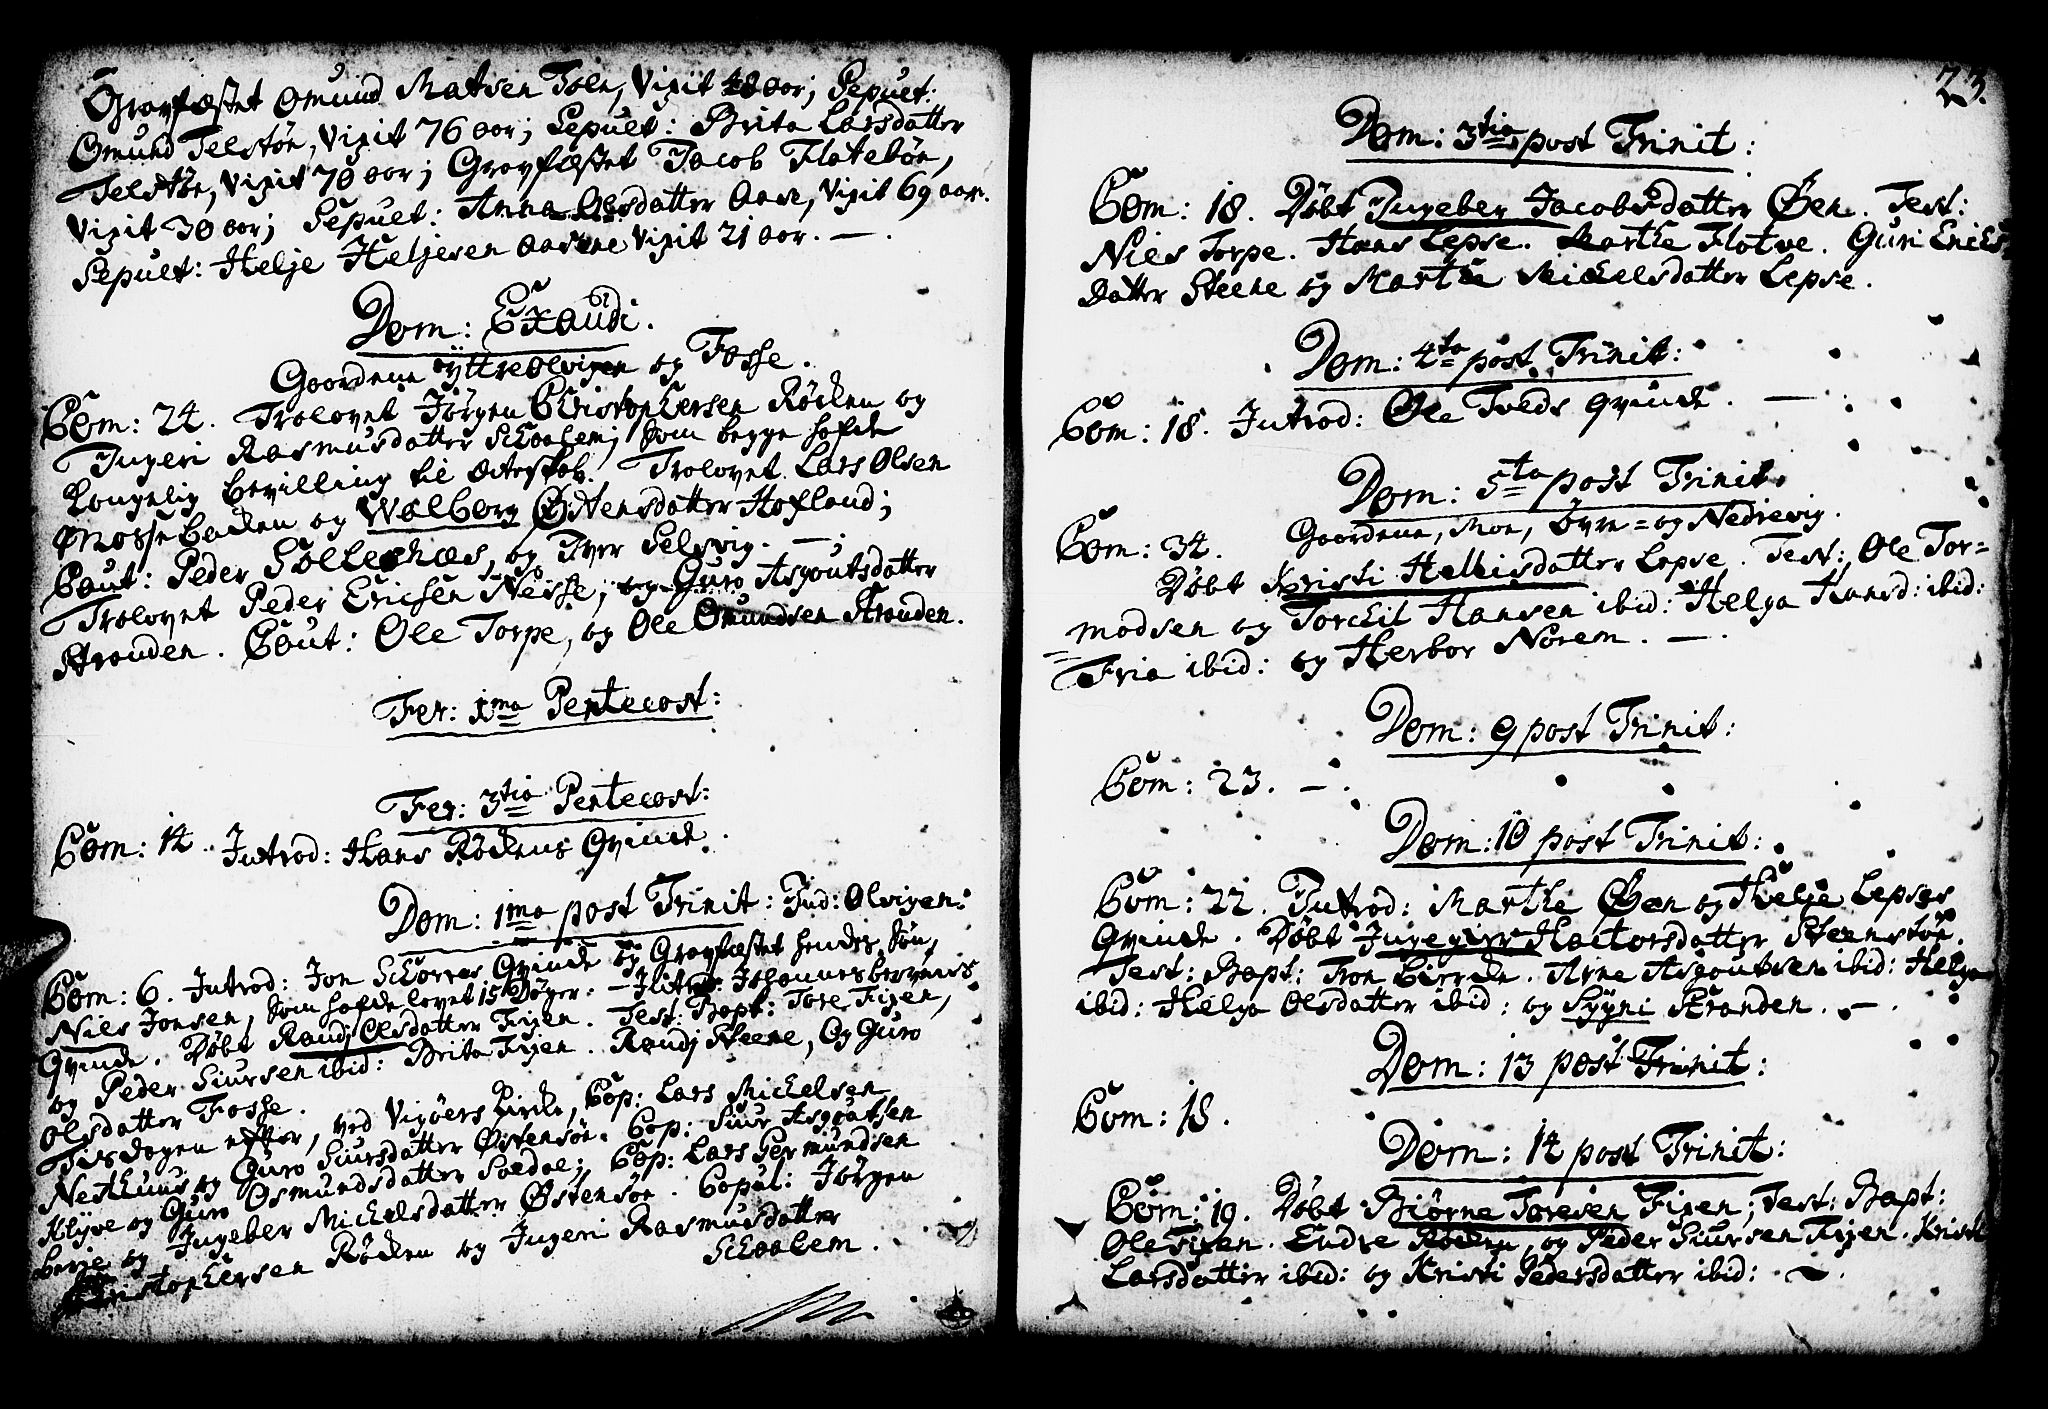 Gravfæstet Omund Matsen Toen, Vixit 48 aar; Sepult:
Omund Telstøn, Vixit 76 aar; Sepult: Brita Larsdatter
Telstøn, Vixit 70 aar; Gravfæstet Jacob Flatebøn,
Vixit 30 aar; Sepult: Anna Olsdatter Aase, Vixit 69 aar.
Sepult: Helje Heljesen Aasene Vixit 21 aar. —.
Dom: Exaudi.
Gaardene yttre Olvigen og Fosse.
Com: 24. Trolovet Jörgen Christophersen Röden og
Ingeri Rasmusdatter Skaalem; som begge hafde
Kongelig bevilling til ægteskab. Trolovet Lars Olsen
Mossebacken og Walborg Østensdatter Hofland;
Caut: Peder Sollesnæs, og Iver Selsvig. —.
Trolovet Peder Ericsen Neisse, og Guro Asgoutsdatter
Stranden. Caut: Ole Torpe, og Ole Omundsen Stranden.
Fer: 1ma Pentecost:
Fer: 3tia Pentecost:
Com: 14. Introd: Hans Rödens Qvinde.
Dom: 1ma post Trinit: Ind: Olvigen:
Com: 6. Introd: Jon Skorres Qvinde og Gravfæstet hendes sön,
Niels Jonsen, som hafde levet 15 Döger: — Johannes
Qvinde. Döbt Randj Olsdatter Fixen. Test: Bapt: Tore Fixen,
og Peder Siursen ibid: Brita Fixen. Randj Steene, og Guro
Olsdatter Fosse.
Tirsdagen efter, ved Vigöers Kirke, Cop: Lars Mickelsen
Nesthuus og Guro Siursdatter Østensöe. Cop: Siur Asgoutsen
Klyve og Guro Osmundsdatter Soldal; Cop: Lars Germundsen
Berje og Ingeber Mickelsdatter Østensöe. Copul: Jörgen
Christophersen Röden og Ingeri Rasmusdatter
Skaalem.
23.
Dom: 3tia post Trinit:
Com: 18. Döbt Ingeber Jacobsdatter Øen. Test:
Niels Torpe. Hans Lepse. Marthe Flotve. Guri Erics
datter Steene og Marthe Mickelsdatter Lepse.
Dom: 4ta post Trinit:
Com: 18. Introd: Ole Tveds Qvinde. —.
Dom: 5ta post Trinit.
Com: 34. Gaardene, Moe, Øvre= og Nedrevig.
Döbt Kristi Helleisdatter Lepse. Test: Ole Tor=
modsen og Torckil Hansen ibid: Helga Hansd: ibid:
Fria ibid: og Herbor Norem. —.
Dom: 9 post Trinit:
Com: 23. —.
Dom: 10 post Trinit:
Com: 22. Introd: Marthe Øen og Helje Lepses
Qvinde. Döbt Ingegier Hactorsdatter Steenstöe.
Test: Bapt: Tron Birrede. Arne Asgoutsen ibid: Helga
ibid: Helga Olsdatter ibid: og Sygni Stranden. —.
Dom: 13 post Trinit:
Com: 18.
Dom: 14 post Trinit:
Com: 19. Döbt Biörne Toresen Fixen; Test: Bapt:
Ole Fixen. Endre Röden, og Peder Siursen Fixen. Kristi
Larsdatter ibid: og Kristi Pedersdatter ibid: